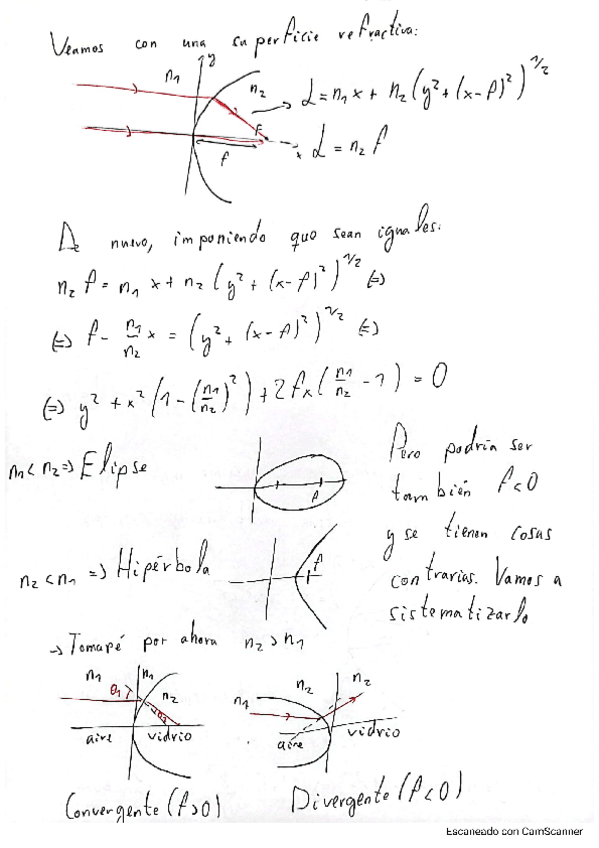 Veamos con una superficie refractiva:
y
n1
n2
L = n1 x + n2 (y² + (x-f)²)^1/2
F
f
x
L = n2 f
De nuevo, imponiendo que sean iguales:
n2 f = n1 x + n2 (y² + (x-f)²)^1/2 (=)
(=) f - n1/n2 x = (y² + (x-f)²)^1/2 (=)
(=) y² + x² (1 - (n1/n2)²) + 2fx (n1/n2 - 1) = 0
n1 < n2 => Elipse
f
n2 < n1 => Hipérbola
f
Pero podría ser
también f<0
y se tienen cosas
contrarias. Vamos a
sistematizarlo
-> Tomaré por ahora n2 > n1
n1
n1
θ1
n2
θ2
aire
vidrio
Convergente (f>0)
n1
n2
n2
aire
vidrio
Divergente (f<0)
Escaneado con CamScanner